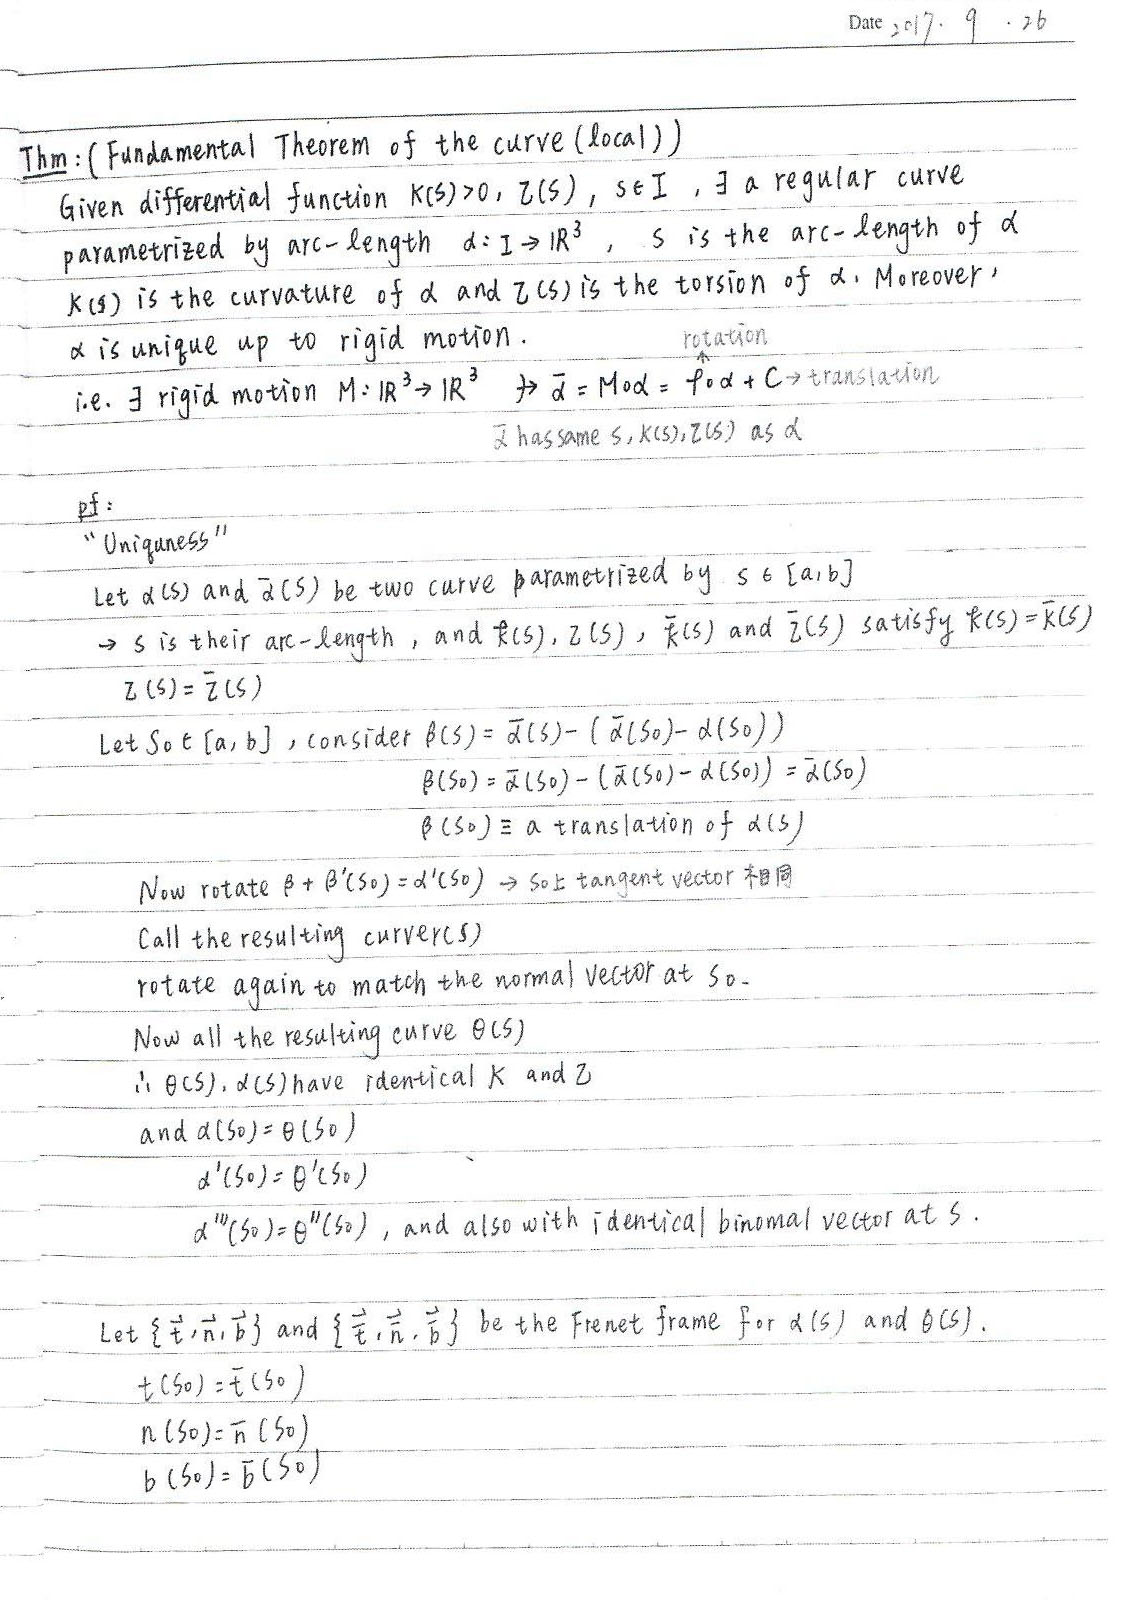 Date 2017. 9 . 26
Thm : ( Fundamental Theorem of the curve (local) )
Given differential function K(s)>0, τ(s), s∈I , ∃ a regular curve
parametrized by arc-length α: I → ℝ³ , s is the arc-length of α
K(s) is the curvature of α and τ(s) is the torsion of α. Moreover,
α is unique up to rigid motion.
rotation
i.e. ∃ rigid motion M: ℝ³→ ℝ³ ∋ ᾱ = M∘α = ρ∘α + C → translation
ᾱ has same s, K(s), τ(s) as α
pf :
"Uniquness"
Let α(s) and ᾱ(s) be two curve parametrized by s ∈ [a,b]
→ s is their arc-length , and k(s), τ(s) , k̄(s) and τ̄(s) satisfy k(s) = k̄(s)
τ(s) = τ̄(s)
Let S₀ ∈ [a, b] , consider β(s) = ᾱ(s) - ( ᾱ(s₀) - α(s₀))
β(s₀) = ᾱ(s₀) - (ᾱ(s₀) - α(s₀)) = ᾱ(s₀)
β(s₀) ≡ a translation of α(s)
Now rotate β + β'(s₀) = α'(s₀) → s₀上 tangent vector 相同
Call the resulting curve r(s)
rotate again to match the normal vector at s₀.
Now all the resulting curve θ(s)
∴ θ(s), α(s) have identical K and τ
and α(s₀) = θ(s₀)
α'(s₀) = θ'(s₀)
α'''(s₀) = θ''(s₀) , and also with identical binomal vector at s .
Let {t⃗, n⃗, b⃗} and {t̄⃗, n̄⃗, b̄⃗} be the Frenet frame for α(s) and θ(s).
t(s₀) = t̄(s₀)
n(s₀) = n̄(s₀)
b(s₀) = b̄(s₀)